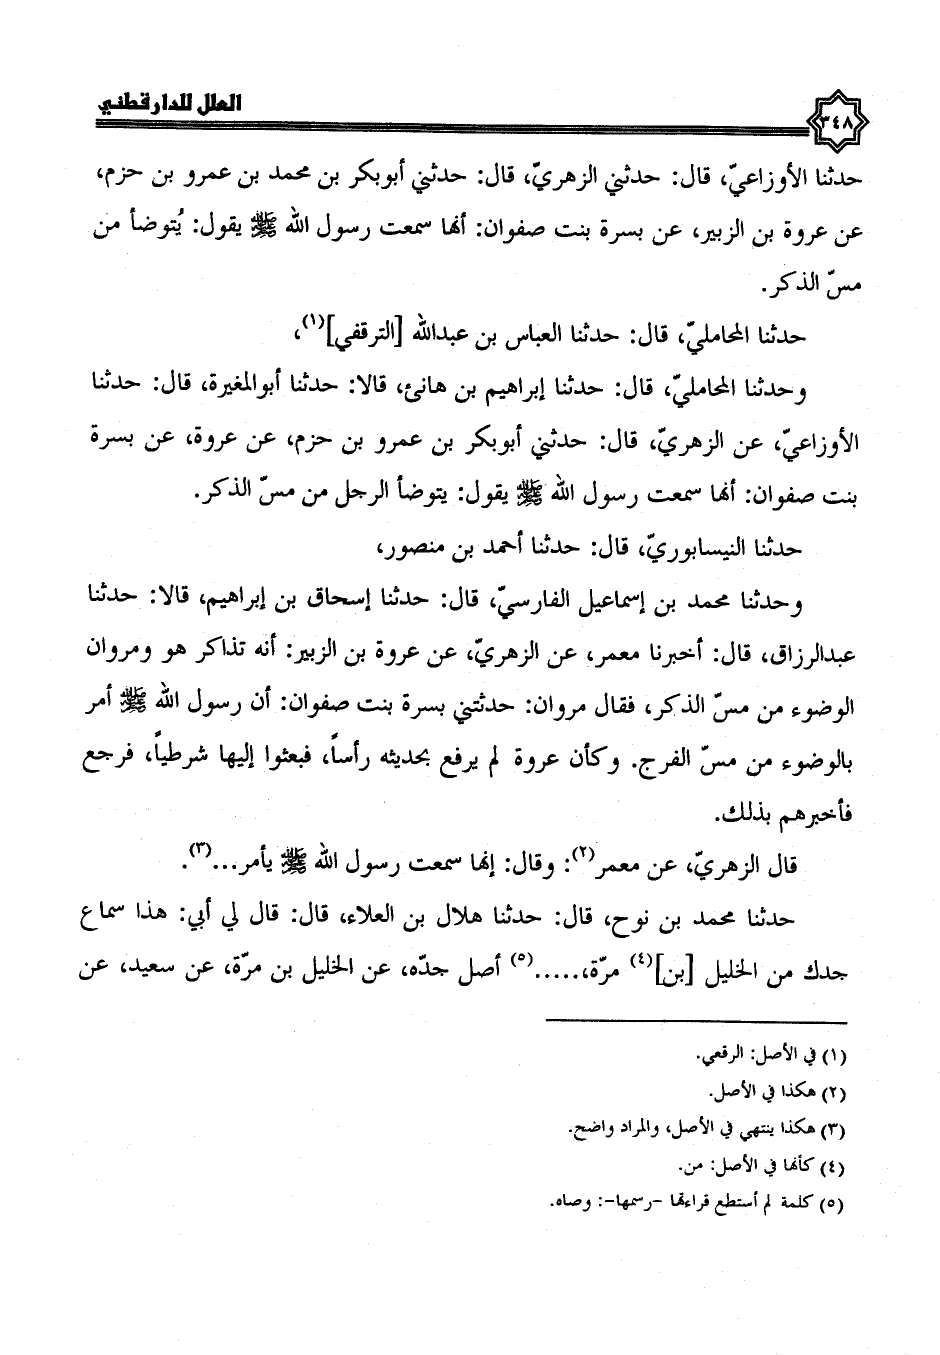 العلل للدارقطني
٣٤٨
حدثنا الأوزاعيّ، قال: حدثني الزهريّ، قال: حدثني أبوبكر بن محمد بن عمرو بن حزم،
عن عروة بن الزبير، عن بسرة بنت صفوان: أنها سمعت رسول الله ﷺ يقول: يُتوضأ من
مسّ الذكر.
حدثنا المحامليّ، قال: حدثنا العباس بن عبدالله [الترقفي](١)،
وحدثنا المحامليّ، قال: حدثنا إبراهيم بن هانئ، قالا: حدثنا أبوالمغيرة، قال: حدثنا
الأوزاعيّ، عن الزهريّ، قال: حدثني أبوبكر بن عمرو بن حزم، عن عروة، عن بسرة
بنت صفوان: أنها سمعت رسول الله ﷺ يقول: يتوضأ الرجل من مسّ الذكر.
حدثنا النيسابوريّ، قال: حدثنا أحمد بن منصور،
وحدثنا محمد بن إسماعيل الفارسيّ، قال: حدثنا إسحاق بن إبراهيم، قالا: حدثنا
عبدالرزاق، قال: أخبرنا معمر، عن الزهريّ، عن عروة بن الزبير: أنه تذاكر هو ومروان
الوضوء من مسّ الذكر، فقال مروان: حدثتني بسرة بنت صفوان: أن رسول الله ﷺ أمر
بالوضوء من مسّ الفرج. وكأن عروة لم يرفع بحديثه رأساً، فبعثوا إليها شرطياً، فرجع
فأخبرهم بذلك.
قال الزهريّ، عن معمر(٢): وقال: إنها سمعت رسول الله ﷺ يأمر...(٣).
حدثنا محمد بن نوح، قال: حدثنا هلال بن العلاء، قال: قال لي أبي: هذا سماع
جدك من الخليل [بن](٤) مرّة،.....(٥) أصل جدّه، عن الخليل بن مرّة، عن سعيد، عن
(١) في الأصل: الرقعي.
(٢) هكذا في الأصل.
(٣) هكذا ينتهي في الأصل، والمراد واضح.
(٤) كأنها في الأصل: من.
(٥) كلمة لم أستطع قراءتها -رسمها-: وصاه.